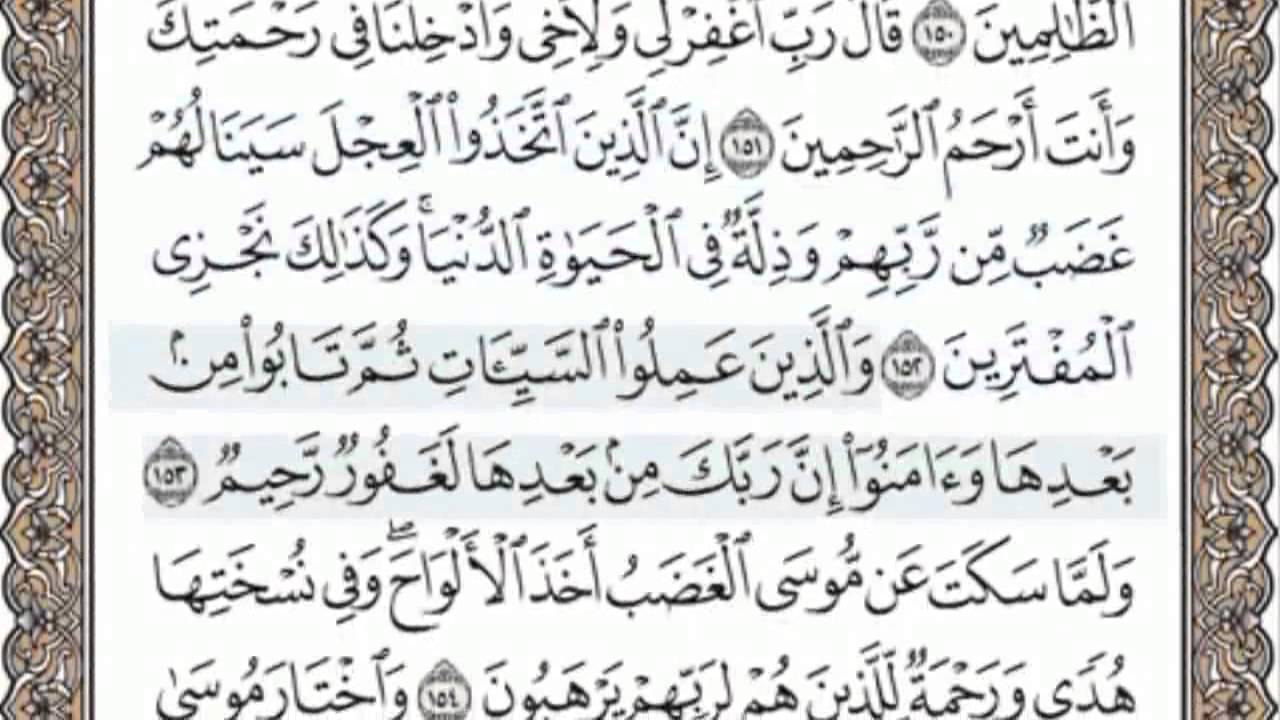 ٱلظَّٰلِمِينَ ١٥٠ قَالَ رَبِّ ٱغْفِرْ لِي وَلِأَخِي وَأَدْخِلْنَا فِي رَحْمَتِكَ
وَأَنتَ أَرْحَمُ ٱلرَّٰحِمِينَ ١٥١ إِنَّ ٱلَّذِينَ ٱتَّخَذُوا۟ ٱلْعِجْلَ سَيَنَالُهُمْ
غَضَبٌ مِّن رَّبِّهِمْ وَذِلَّةٌ فِي ٱلْحَيَوٰةِ ٱلدُّنْيَا ۚ وَكَذَٰلِكَ نَجْزِي
ٱلْمُفْتَرِينَ ١٥٢ وَٱلَّذِينَ عَمِلُوا۟ ٱلسَّيِّـَٔاتِ ثُمَّ تَابُوا۟ مِنۢ
بَعْدِهَا وَءَامَنُوٓا۟ إِنَّ رَبَّكَ مِنۢ بَعْدِهَا لَغَفُورٌ رَّحِيمٌ ١٥٣
وَلَمَّا سَكَتَ عَن مُّوسَى ٱلْغَضَبُ أَخَذَ ٱلْأَلْوَاحَ ۖ وَفِي نُسْخَتِهَا
هُدًى وَرَحْمَةٌ لِّلَّذِينَ هُمْ لِرَبِّهِمْ يَرْهَبُونَ ١٥٤ وَٱخْتَارَ مُوسَىٰ